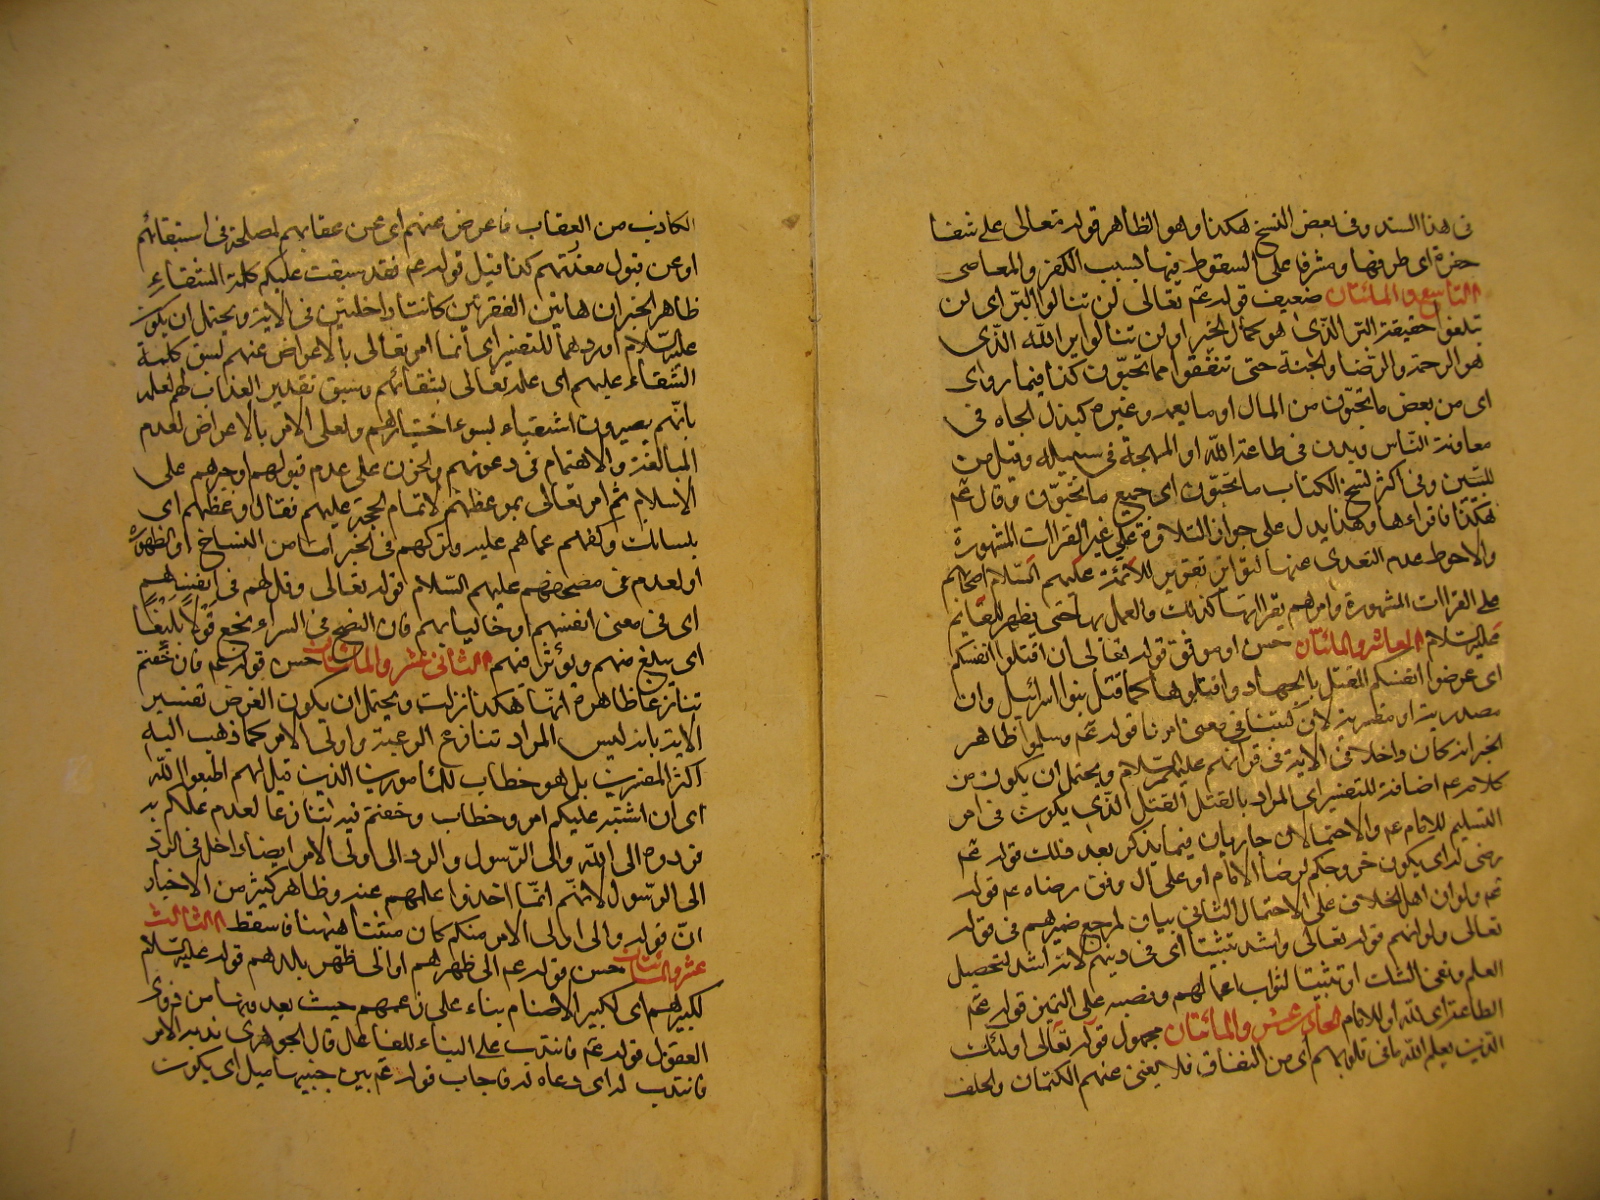 فى هذا السند وفى بعض النسخ هكذا وهو الظاهر قوله تعالى على شفا
حفرة اى طرفها ومشرفا على السقوط فيها بسبب الكفر والمعاصى
التاسع والمائتان ضعيف قوله عم تعالى لن تنالوا البر اى لن
تبلغوا حقيقة البر الذى هو كمال الخير او لن تنالوا بر الله الذى
هو الرحمة والرضا والجنة حتى تنفقوا مما تحبون كذا فيما روا اى
اى من بعض ما تحبون من المال او ما يعمه وغيره كبذل الجاه فى
معاونة الناس وبدن فى طاعة الله او المهجة فى سبيله وقيل من
للتبيين وفى اكثر نسخ الكتاب ما تحبون اى جميع ما تحبون وقال عم
هكذا فاقراءها وهذا يدل على جواز التلاوة على غير القراات المشهورة
والاحوط عدم التعدى عنها لتواتر تقرير الائمة عليهم السلام اصحابهم
على القراات المشهورة وامرهم بقراءتها كذلك والعمل بها حتى يظهر القائم
عليه السلام العاشر والمائتان حسن او موثق قوله تعالى ان اقتلوا انفسكم
اى عرضوا انفسكم للقتل بالجهاد واقتلوها كما قتل بنوا اسرائيل وان
مصدرية او مفسرة لان كتبنا فى معنى امرنا قوله عم وسلموا ظاهر
الخبر انه كان داخلا فى الاية فى قرآنهم عليهم السلام ويحتمل ان يكون من
كلامه عم اضافة للتفسير اى المراد بالقتل القتل الذى يكون فى امر
التسليم للامام عم والاحتمالان جاريان فيما يذكر بعد ذلك قوله عم
رضى له اى يكون خروجكم لرضا الامام او على ال وفق رضاه عم قوله
عم ولو ان اهل الخلاف على الاحتمال الثانى بيان لمرجع ضميرهم فى قوله
تعالى ولو انهم قوله تعالى واشد تثبيتا اى فى دينهم لانه اشد لتحصيل
العلم ونفى الشك او تثبيتا لثواب اعمالهم ونصبه على التميز قوله عم
الطاعة اى لله او للامام الحادى عشر والمائتان مجهول قوله تعالى اولئك
الذين يعلم الله ما فى قلوبهم اى من النفاق فلا يغنى عنهم الكتمان والحلف
الكاذب من العقاب فاعرض عنهم اى عن عقابهم لمصلحة فى استبقائهم
او عن قبول معذرتهم كذا قيل قوله عم فقد سبقت عليهم كلمة الشقاء
ظاهر الخبر ان هاتين الفقرتين كانتا داخلتين فى الاية ويحتمل ان يكون
عليه السلام اوردهما للتفسير اى انما امر تعالى بالاعراض عنهم لسبق كلمة
الشقاء عليهم اى علمه تعالى بشقائهم وسبق تقدير العذاب لهم لعلمه
بانهم يصيرون اشقياء بسوء اختيارهم ولعل الامر بالاعراض لعدم
المبالغة والاهتمام فى دعوتهم والحزن على عدم قبولهم او جبرهم على
الاسلام ثم امر تعالى بموعظتهم لاتمام الحجة عليهم فقال وعظهم اى
بلسانك وكفهم عما هم عليه وتركهم فى الخبر اما من النساخ او لظهوره
او لعدمه فى مصحفهم عليهم السلام قوله تعالى وقل لهم فى انفسهم
اى فى معنى انفسهم او خاليا بهم فان النصح فى السر انجع قولا بليغا
اى يبلغ منهم ويؤثر فيهم الثانى عشر والمائتان حسن قوله عم فان خفتم
تنازعا ظاهره انها هكذا نزلت ويحتمل ان يكون الغرض تفسير
الاية بانه ليس المراد تنازع الرعية واولى الامر كما ذهب اليه
اكثر المفسرين بل هو خطاب للمأمورين الذين قيل لهم اطيعوا الله
اى ان اشتبه عليكم امر وخطاب وخفتم فيه تنازعا لعدم علمكم به
فردوه الى الله والى الرسول والرد الى اولى الامر ايضا داخل فى الرد
الى الرسول لانهم انما اخذوا علمهم عنه وظاهر كثير من الاخبار
ان قوله والى اولى الامر منكم كان مثبتا ههنا فاسقط الثالث
عشر والمائتان حسن قوله عم الى ظهرهم او الى ظهر بلدهم قوله عليه السلام
لكبيرهم اى لكبير الاصنام بناء على زعمهم حيث يعدونها من ذوى
العقول قوله عم فانتدب على البناء للفاعل قال الجوهرى ندبه لامر
فانتدب له اى دعاه له فاجاب قوله عم بين جنبيها ميل اى يكون